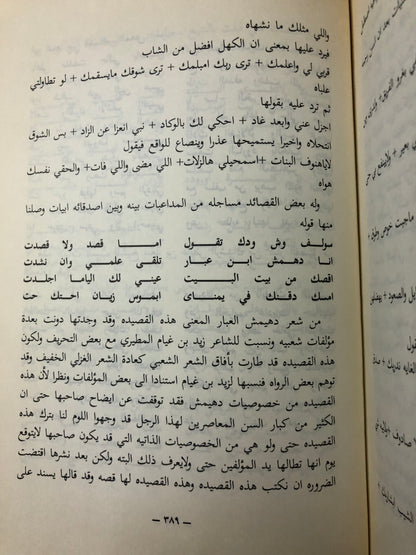 واللي مثلك ما نشهاه
فيرد عليها بمعنى ان الكهل افضل من الشاب
قربي لي واعلمك + ترى ربك امبلمك + ترى شوقك مايسقمك + لو تطاولتي
علباه
ثم ترد عليه بقولها
اجزل عني وابعد غاد + احكي لك بالوكاد + نبي انعزا عن الزاد + بس الشوق
انتحلاه واخيرا يستميحها عذرا وينصاع للواقع فيقول
لاياهنوف البنات + اسمحيلي هالزلات + اللي مضى واللي فات + والحقي نفسك
هواه
وله بعض القصائد مساجله من المداعبات بينه وبين اصدقائه ابيات وصلنا
منها قوله
مولف وش ودك تقول اما قصد ولا قصدت
انا دهمش ابن عبار تلقى علمي وان نشدت
اقصك من بيت البيت عيني لك الياما اجلدت
امسك دقنك في يمناي ابموس زيان احتك حت
من شعر دهيمش العبار المعنى هذه القصيده وقد وجدتها دونت بعدة
مؤلفات شعبيه ونسبت للشاعر زيد بن غيام المطيري مع بعض التحريف ولكون
هذه القصيده قد طارت بأفاق الشعر الشعبي كعادة الشعر الغزلي الخفيف وقد
توهم بعض الرواه فنسبها لزيد بن غيام استنادا الى بعض المؤلفات ونظرا لأن هذه
القصيده من خصوصيات دهيمش فقد توقفت عن ايضاح صاحبها حتى ان
الكثير من كبار السن المعاصرين لهذا الرجل قد وجهوا اللوم لنا بترك هذه
القصيده حتى ولو هي من الخصوصيات الذاتيه التي قد يكون صاحبها لايتوقع
يوم انها تطالها يد المؤلفين حتى ولايعرف ذلك البته ولكن بعد نشرها اقتضت
الضروره ان نكتب هذه القصيده وهذه القصيده لها قصه وقد قالها يسند على
— ٣٨٩ —